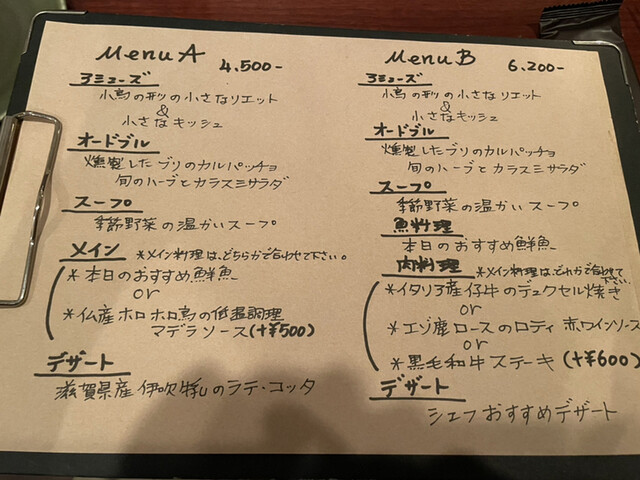 Menu A 4.500-
アミューズ
小鳥の形の小さなリエット
&
小さなキッシュ
オードブル
燻製したブリのカルパッチョ
旬のハーブとカラスミサラダ
スープ
季節野菜の温かいスープ
メイン *メイン料理は、どちらかで合わせて下さい。
* 本日のおすすめ鮮魚
or
* 仏産ホロホロ鳥の低温調理
マデラソース(+¥500)
デザート
滋賀県産 伊吹 のラテ・コッタ
Menu B 6.200-
アミューズ
小鳥の形の小さなリエット
&
小さなキッシュ
オードブル
燻製したブリのカルパッチョ
旬のハーブとカラスミサラダ
スープ
季節野菜の温かいスープ
魚料理
本日のおすすめ鮮魚
肉料理 *メイン料理は、どれかで合わせて
下さい
* イタリア産仔牛のデュクセル焼き
or
* エゾ鹿ロースのロティ 赤ワインソース
or
* 黒毛和牛ステーキ (+¥600)
デザート
シェフおすすめデザート